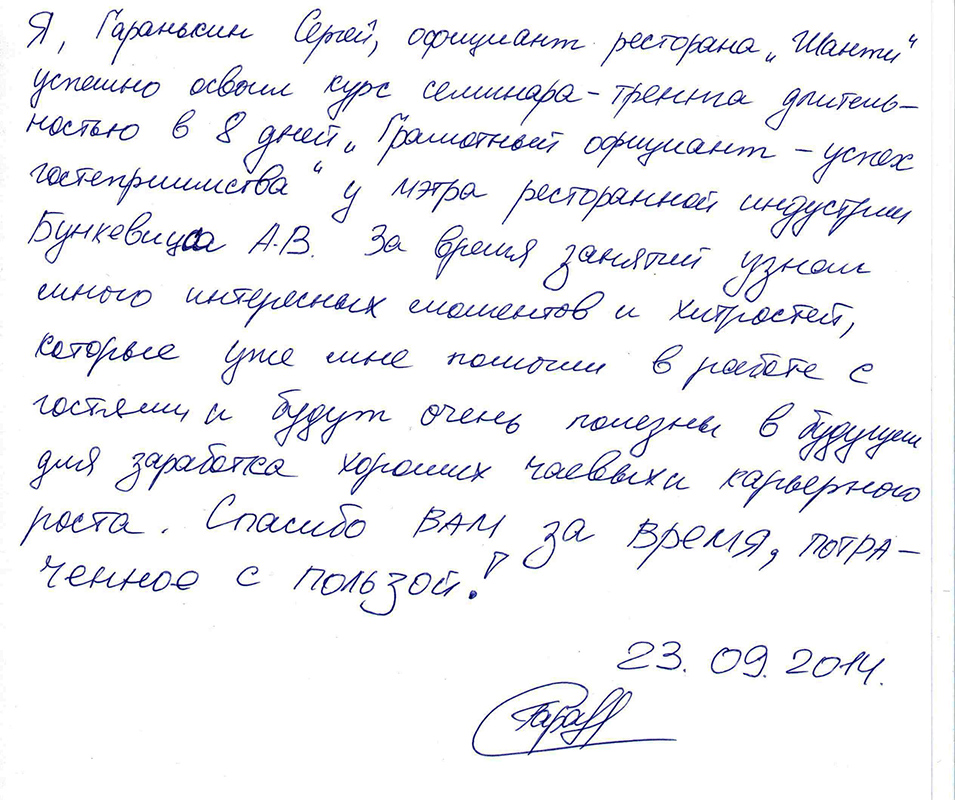 Я, Гаранькин Сергей, официант ресторана „Шанти“
успешно освоил курс семинара-тренинга длитель-
ностью в 8 дней „Грамотный официант - успех
гостеприимства“ у мэтра ресторанной индустрии
Бункевица А.В. За время занятий узнал
много интересных моментов и хитростей,
которые уже мне помогли в работе с
гостями и будут очень полезны в будущем
для заработка хороших чаевых и карьерного
роста. Спасибо ВАМ за время, потра-
ченное с пользой!
23.09.2014.